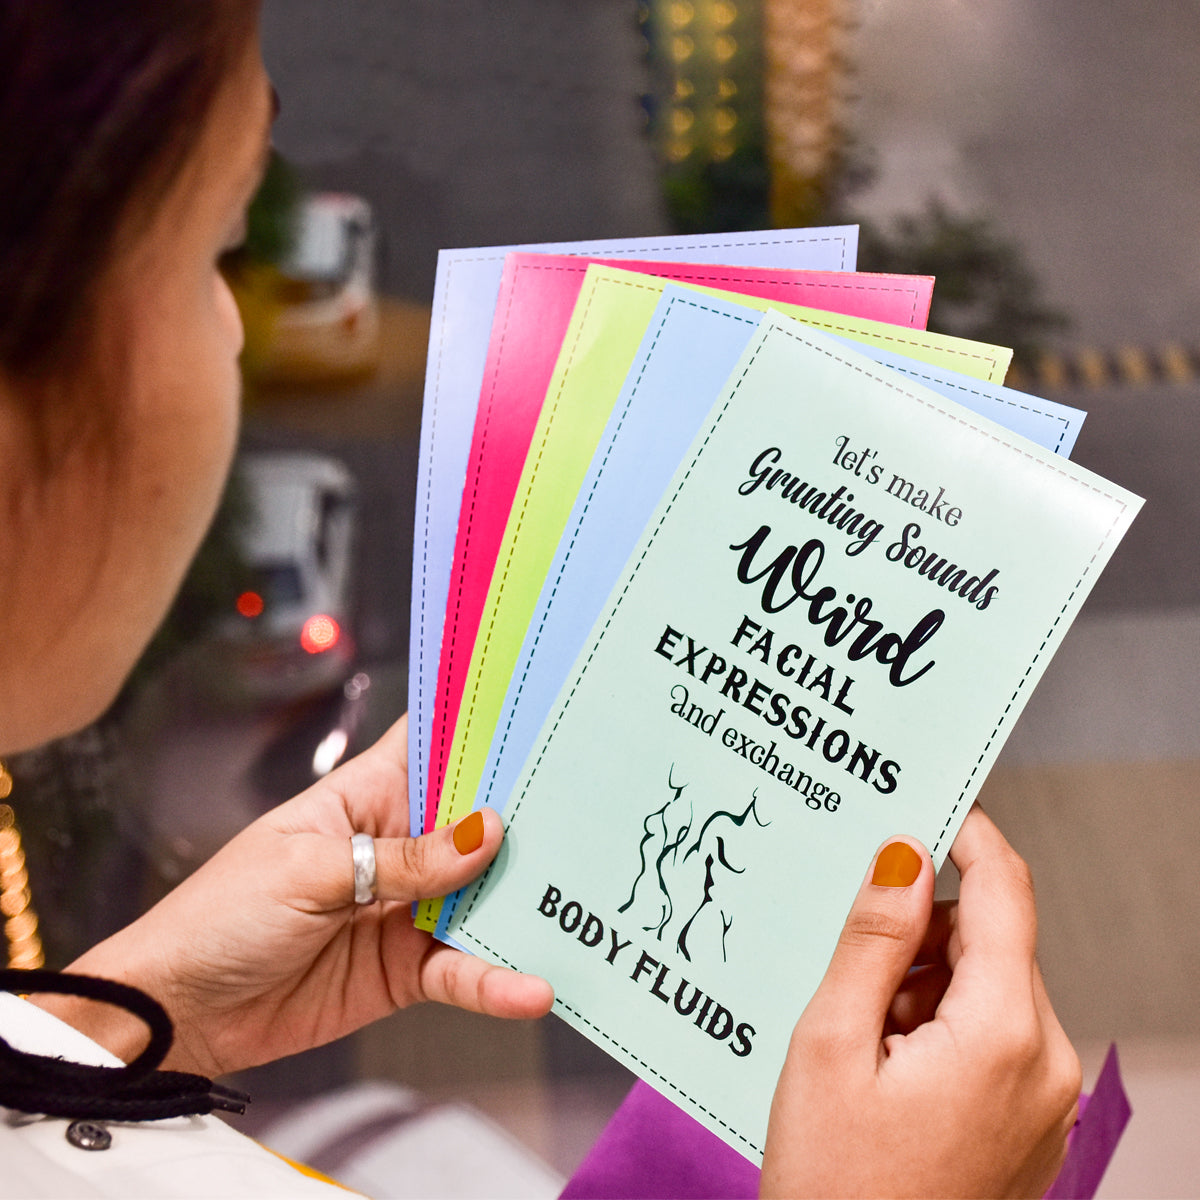 let's make
Grunting Sounds
Weird
FACIAL
EXPRESSIONS
and exchange
BODY FLUIDS